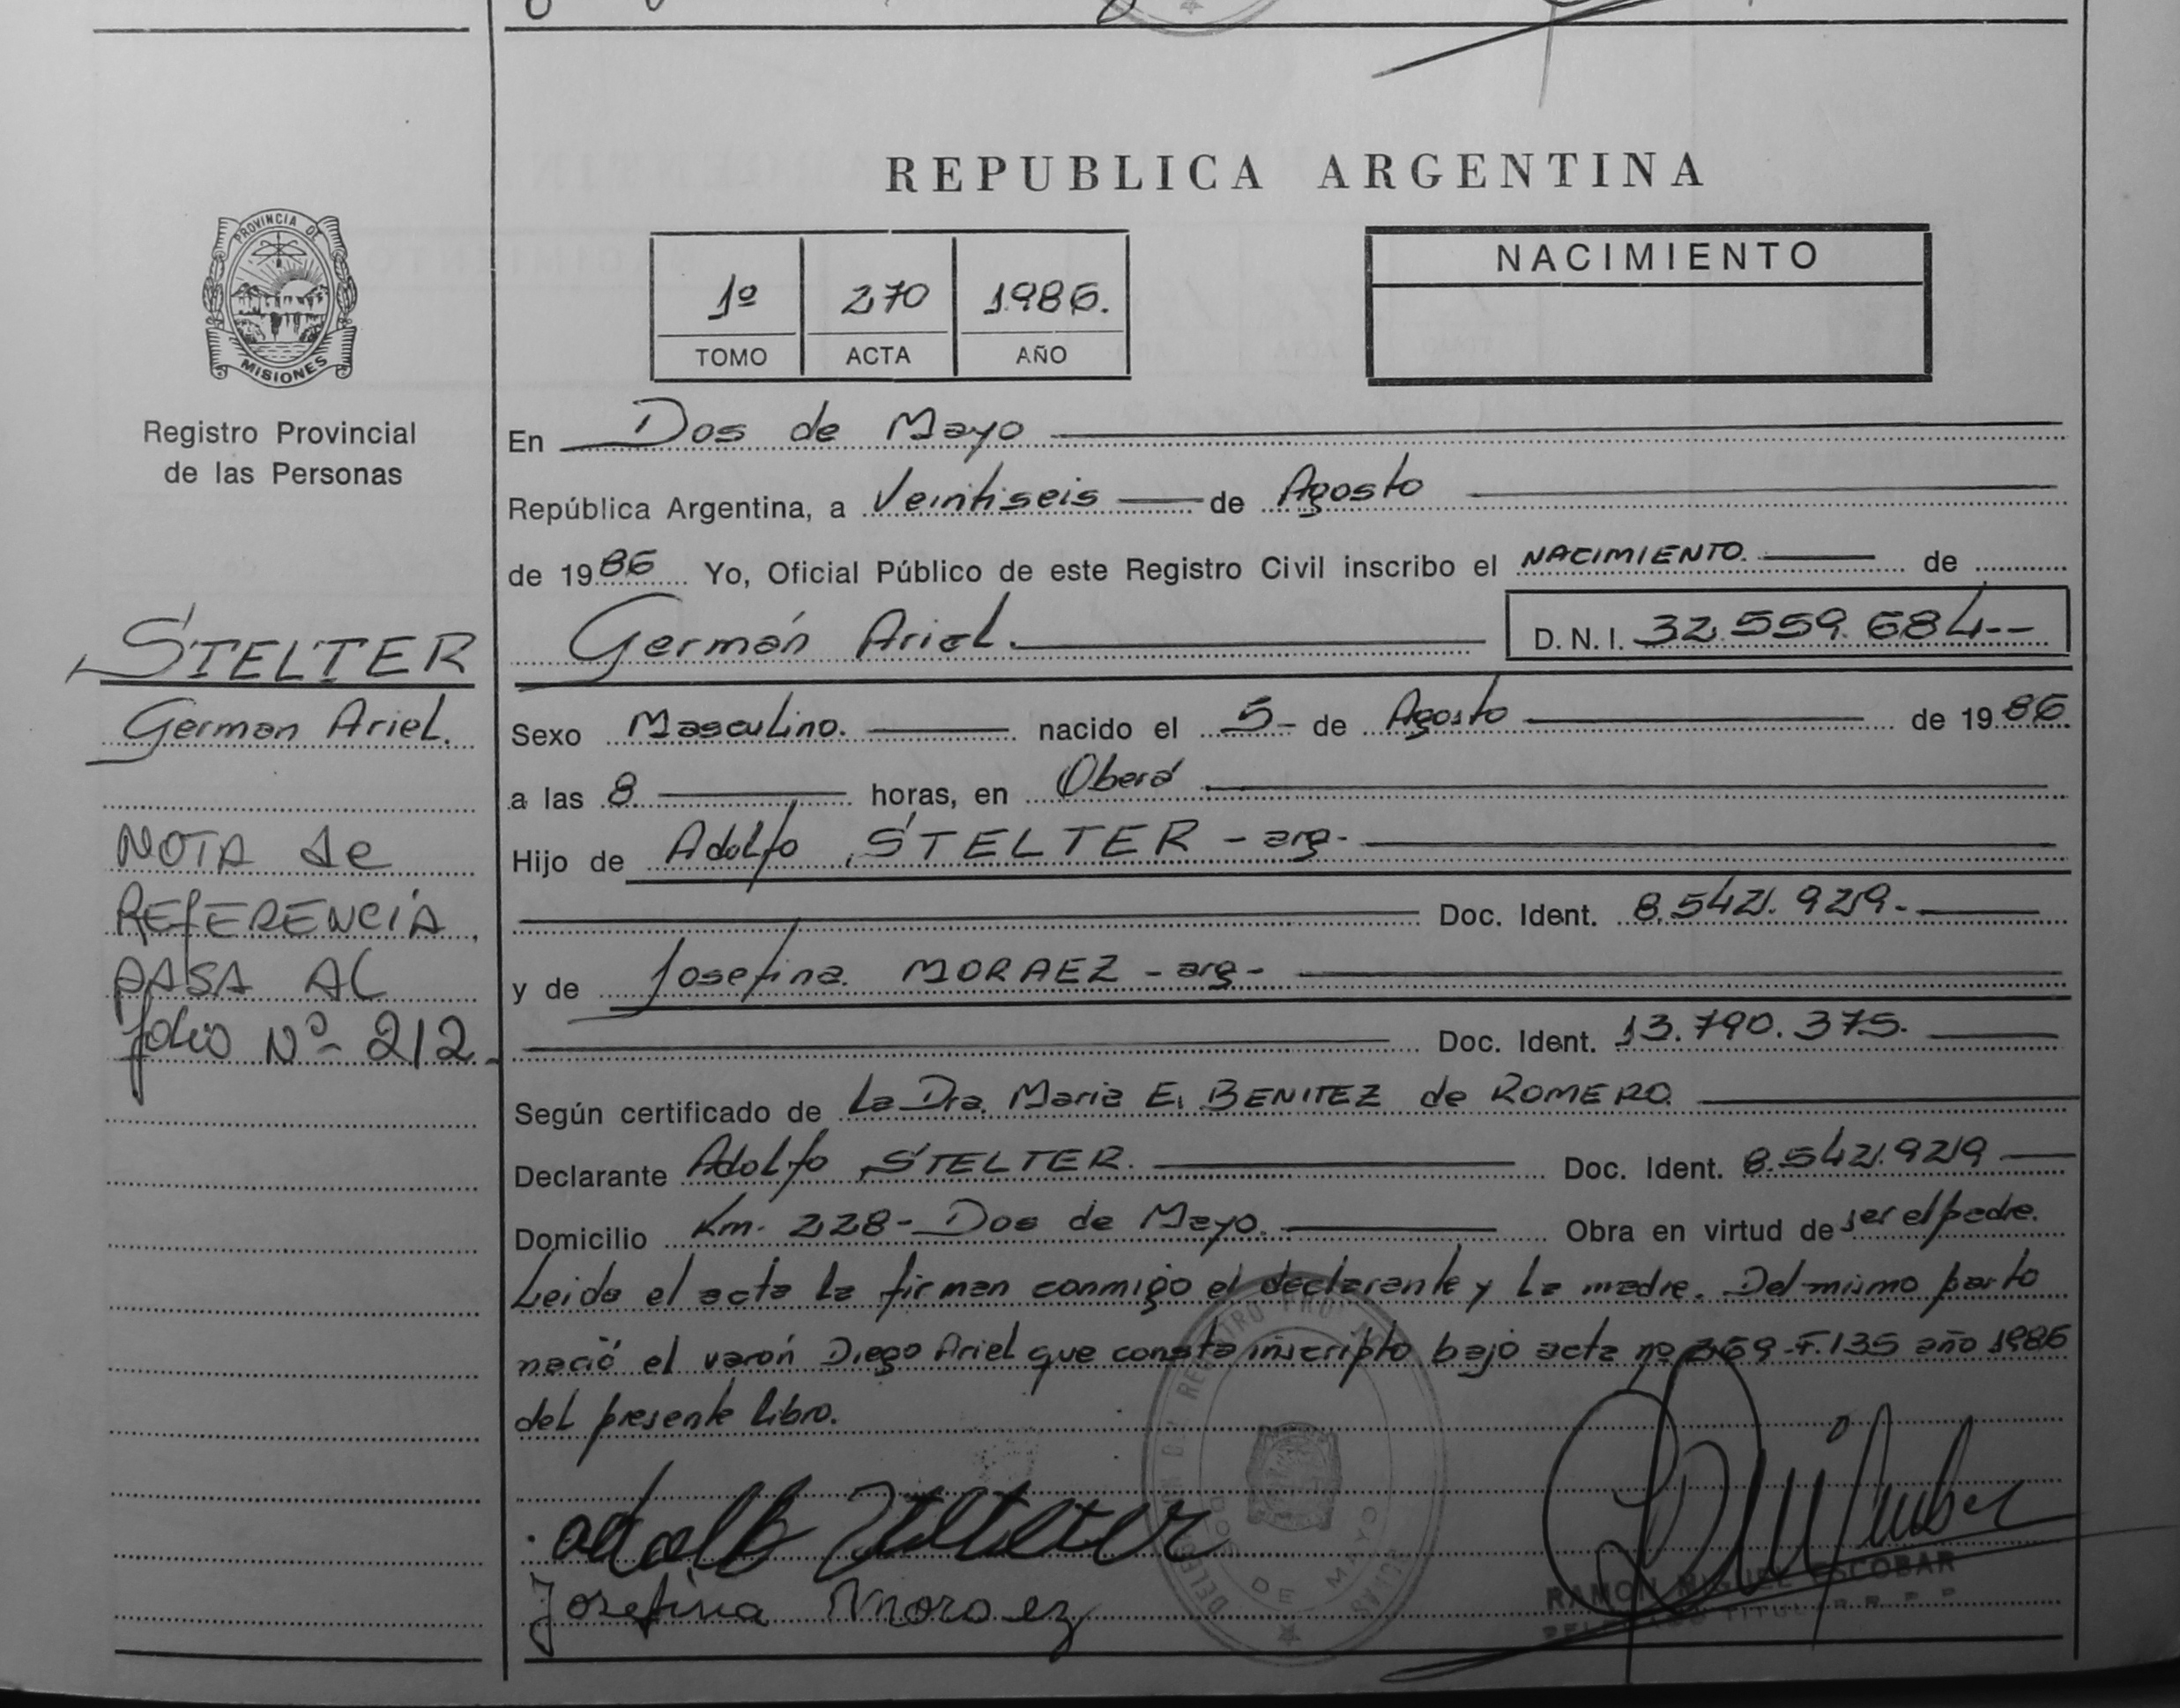 REPUBLICA ARGENTINA
PROVINCIA DE
MISIONES
Registro Provincial
de las Personas
STELTER
German Ariel.
NOTA de
REFERENCIA
PASA AL
folio Nº 212.
1º 270 1986.
TOMO ACTA AÑO
NACIMIENTO
En Dos de Mayo
República Argentina, a Veintiseis de Agosto
de 1986 Yo, Oficial Público de este Registro Civil inscribo el NACIMIENTO. de
Germán Ariel. D.N.I. 32.559.684--
Sexo Masculino. nacido el 5- de Agosto de 1986
a las 8 horas, en Oberá
Hijo de Adolfo STELTER - arg-
Doc. Ident. 8.542.929.-
y de Josefina MORAEZ - arg-
Doc. Ident. 13.790.375.
Según certificado de La Dra. Maria E. BENITEZ de ROMERO.
Declarante Adolfo STELTER. Doc. Ident. 8.542.929
Domicilio Km. 228- Dos de Mayo. Obra en virtud de ser el padre.
Leida el acta la firman conmigo el declarante y la madre. Del mismo parto
nació el varón Diego Ariel que consta inscripto bajo acta nº 269-F.135 año 1986
del presente libro.
Adolfo Stelter
Josefina Moraez
DOS DE MAYO
RAMON MIGUEL ESCOBAR
DELEGADO TITULAR R. P. P.